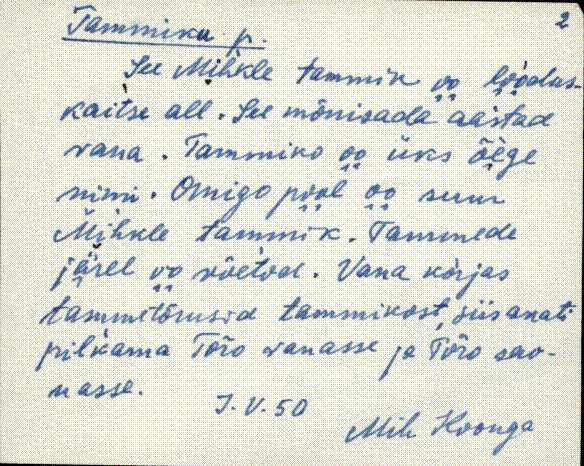 2
Tammiku p.
See Mihkle tammik oo loodus-
kaitse all. See mõnisada aastad
vana. Tammiko oo üks õege
nimi. Omigo pool oo suur
Mihkle tammik. Tammede
järel oo võetod. Vana korjas
tammetõrusid tammikost, siis anati
pilkama Tõro vanasse ja Tõro sao-
nasse.
J. V. 50
Mih Koonga